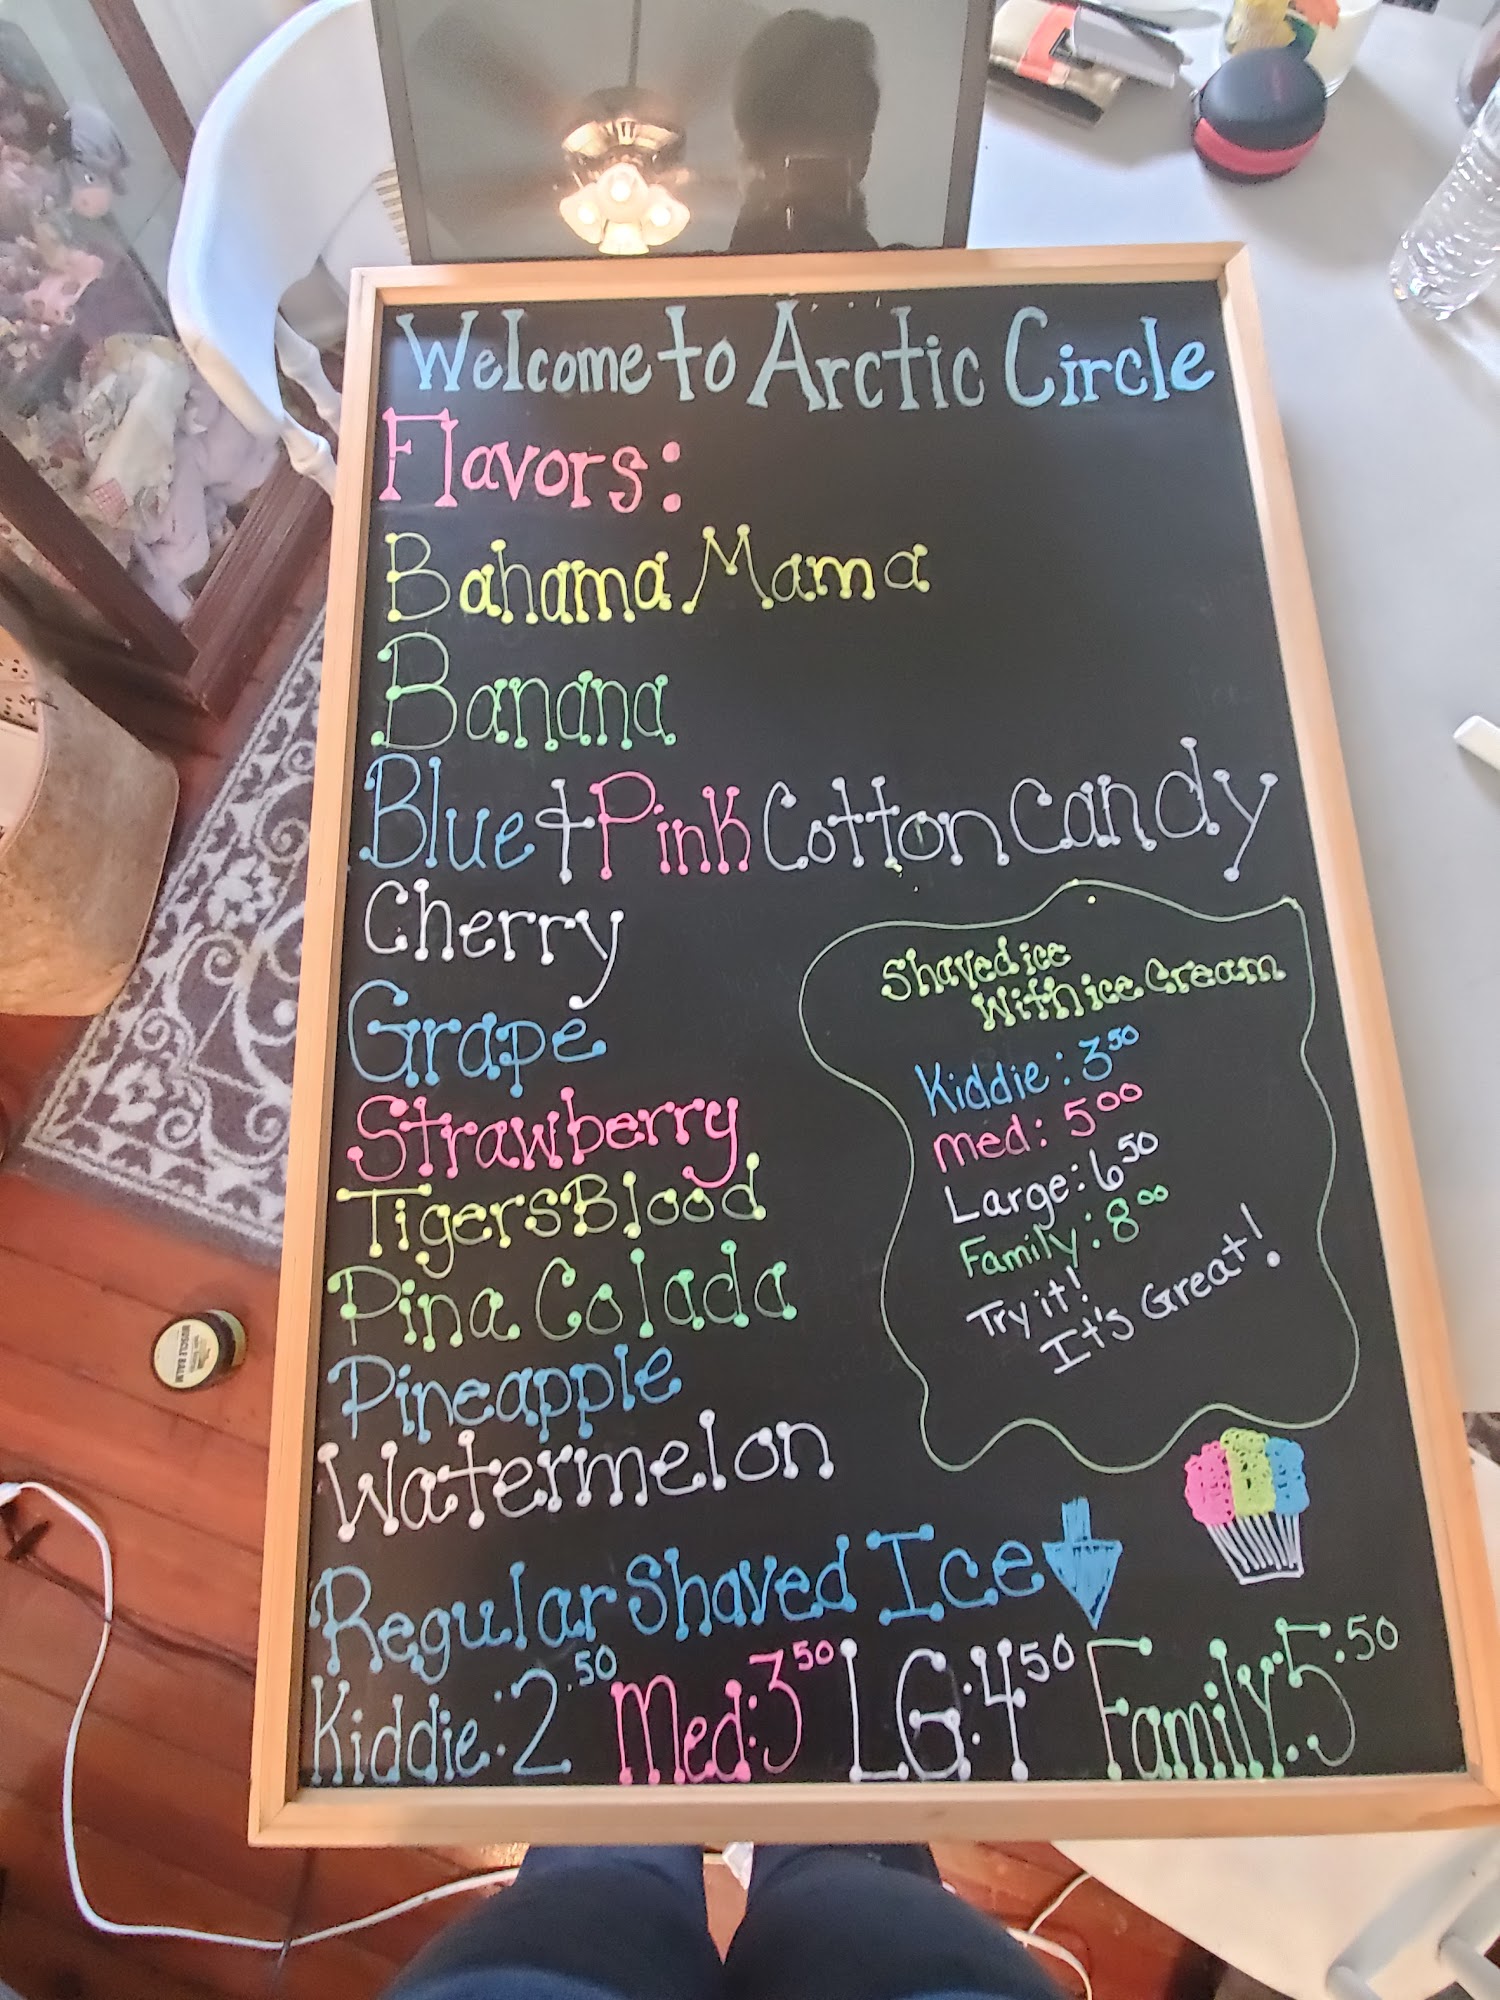 Welcome to Arctic Circle
Flavors:
Bahama Mama
Banana
Blue + Pink Cotton Candy
Cherry
Grape
Strawberry
Tigers Blood
Pina Colada
Pineapple
Watermelon
Shaved ice
With ice Cream
Kiddie: 3.50
Med: 5.00
Large: 6.50
Family: 8.00
Try it!
It's Great!
Regular Shaved Ice
Kiddie: 2.50 Med: 3.50 LG: 4.50 Family: 5.50
MUSCLE BALM